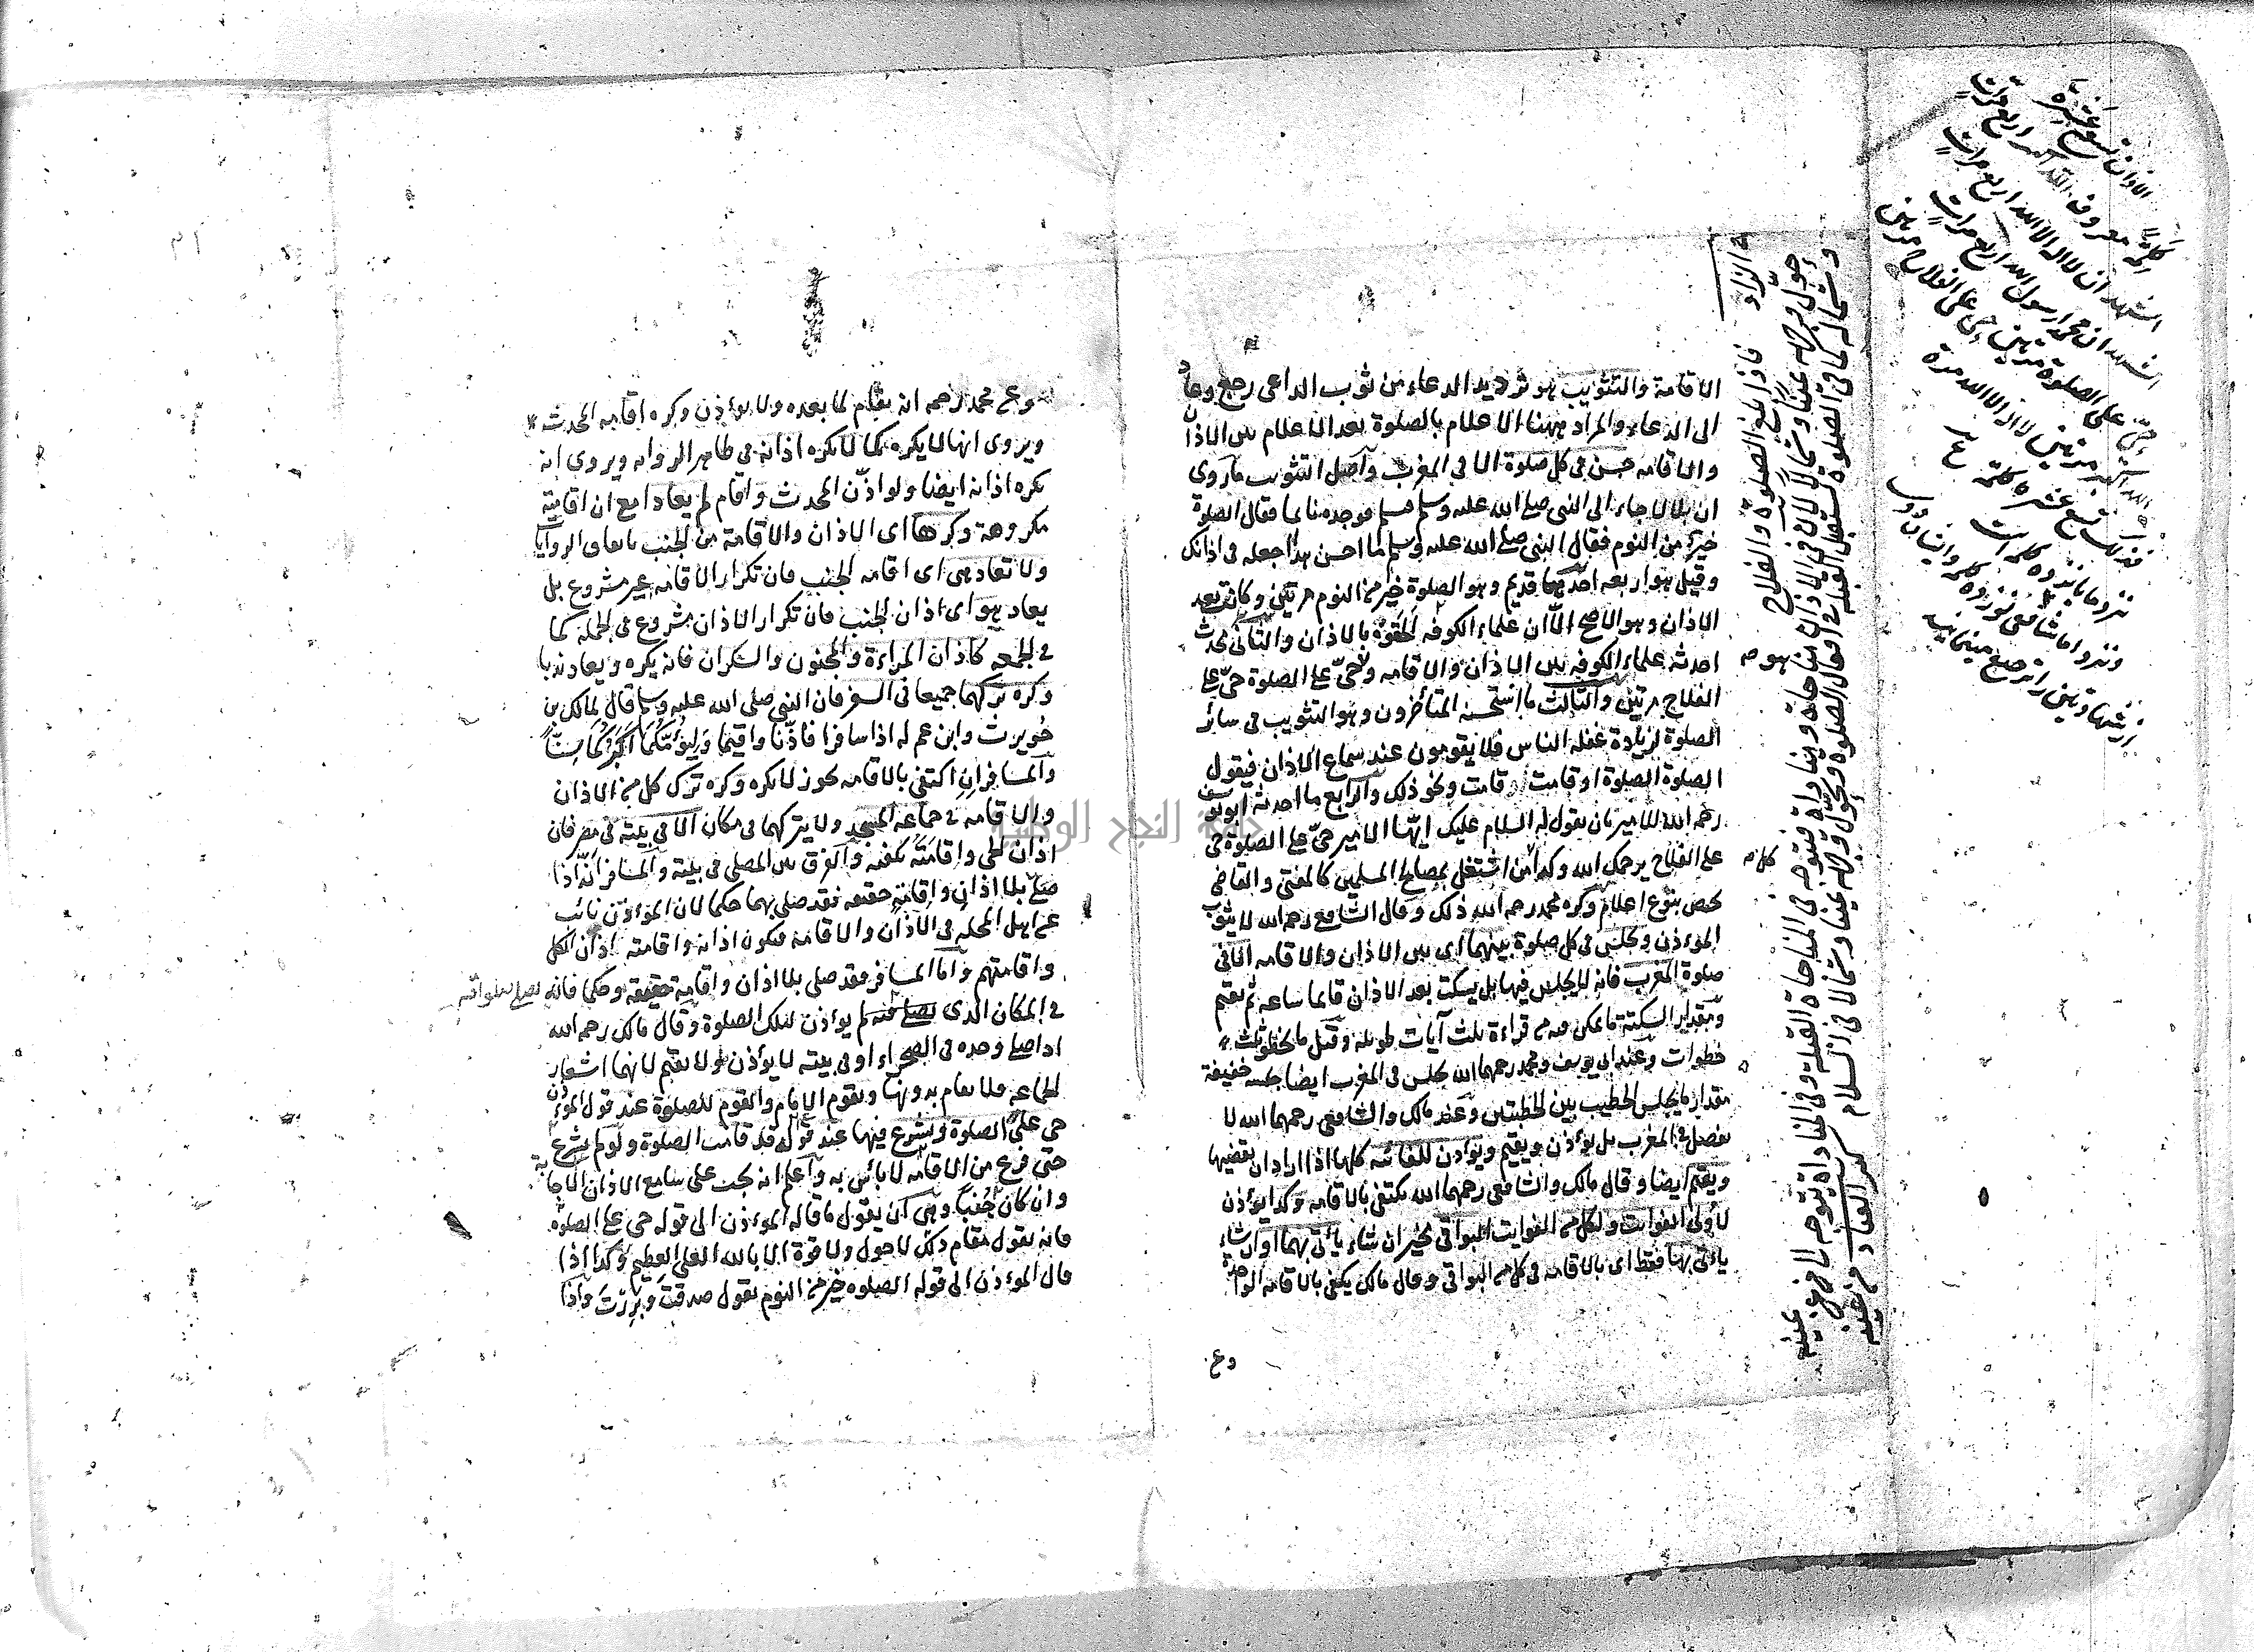 الاقامة والتثويب هو ترديد الدعاء من ثوب الداعى رجع وعاد
الى الدعاء والمراد ههنا الاعلام بالصلوة بعد الاعلام بين الاذان
والاقامه حسن فى كل صلوة الا فى المغرب وأصل التثويب ما روى
ان بلالا جاء الى النبى صلى الله عليه وسلم فوجده نائما فقال الصلوة
خير من النوم فقال النبى صلى الله عليه وسلم ما احسن هذا اجعله فى اذانك
وقيل هو اربعه احدها قديم وهو الصلوة خير من النوم مرتين وكان بعد
الاذان وهو الاصح الا ان علماء الكوفه الحقوه بالاذان والثانى محدث
احدثه علماء الكوفه بين الاذان والاقامه وهو حىّ على الصلوة حىّ على
الفلاح مرتين والثالث ما استحسنه المتأخرون وهو التثويب فى سائر
الصلوة لزيادة غفله الناس فلا يقومون عند سماع الاذان فيقول
الصلوة الصلوة او قامت قامت ونحو ذلك والرابع ما احدثه ابو يوسف
رحمه الله للامير بان يقول له السلام عليك ايها الامير حىّ على الصلوة حى
على الفلاح يرحمك الله وكذا من اشتغل بمصالح المسلمين كالمفتى والقاضى
يخص بنوع اعلام وكره محمد رحمه الله ذلك وقال الشافعى رحمه الله لا يثوب
الموءذن ويجلس فى كل صلوة بينهما اى بين الاذان والاقامه الا فى
صلوة المغرب فانه لا يجلس فيها بل يسكت بعد الاذان قايما ساعه ثم يقيم
ومقدار السكتة ما يمكن فيه من قراءة ثلث آيات طويله وقيل ما يخطو ثلث
خطوات وعند ابى يوسف ومحمد رحمهما الله يجلس فى المغرب ايضا جلسه خفيفة
مقدار ما يجلس الخطيب بين الخطبتين وعند مالك والشافعى رحمهما الله لا
يفصل فى المغرب بل يؤذن ويقيم ويؤذن للفائته كلها اذا اراد ان يقضيها
ويقيم ايضا وقال مالك والشافعى رحمهما الله يكتفى بالاقامه وكذا يؤذن
لأولى الفوايت ولكل من الفوايت البواقى يخير ان شاء يأتى بهما او ان شاء
يأتى بها فقط اى بالاقامه فى كل من البواقى وقال مالك يكفى بالاقامه الواحدة
وعن
وعن محمد رحمه انه يقام لما بعده ولا يوءذن وكره اقامه المحدث
ويروى انها لا يكره كما لا يكره اذانه فى ظاهر الروايه ويروى انه
يكره اذانه ايضا ولو اذّن المحدث واقام لم يعادا مع ان اقامته
مكروهة وكرها اى الاذان والاقامة من الجنب باتفاق الروايات
ولا تعاد هى اى اقامه الجنب فان تكرار الاقامه غير مشروع بل
يعاد هو اى اذان الجنب فان تكرار الاذان مشروع فى الجمله كما
فى الجمعه كاذان المراءة والمجنون والسكران فانه يكره ويعاد ندبا
وكره تركهما جميعا فى السفر فان النبى صلى الله عليه وسلم قال لمالك بن
حُويرث وابن عم له اذا سافرا فاذّنا واقيما وَلِيَؤُمَّكُمَا اَكْبَرُكُمَا سِنًّا
والمسافران اكتفى بالاقامه يجوز لا يكره وكره ترك كل من الاذان
والاقامه فى جماعه المسجد ولا يتركهما فى مكان الا فى بيته فى مصر فان
اذان الحى واقامته يكفيه والفرق بين المصلى فى بيته والمسافر انه اذا
صلى بلا اذان واقامة حقيقه فقد صلى بهما حكما لان الموءذّن نائب
عن اهل المحله فى الاذان والاقامة فيكون اذانه واقامته اذان الكل
واقامتهم واما المسافر فقد صلى بلا اذان واقامة حقيقة وحكما فانه
فى المكان الذى يصلى فيه لم يوءذن لتلك الصلوة وقال مالك رحمه الله
اذا صلى وحده فى الصحراء او فى بيته لا يوءذن ولا يقيم لانهما اشعار
الجماعه فلا يقام بدونها ويقوم الامام والقوم للصلوة عند قول الموءذن
حى على الصلوة ويشرع فيها عند قوله قد قامت الصلوة ولو لم يشرع
حتى فرغ من الاقامه لا بأس به واعلم انه يجب على سامع الاذان الاجابة
وان كان جُنُباً وهى ان يقول ما قاله الموءذن الى قوله حى على الصلوة
فانه يقول مقام ذلك لا حول ولا قوة الا بالله العلى العظيم وكذا اذا
قال الموءذن الى قوله الصلوه خير من النوم يقول صدقت وبَرِرتَ واذا
فاذا بلغ الصلوة والفلاح
حوّل وجهه يمينا وشمالا لان فى الاذان مناجاة ومناداة فيتوجه فى المناجاة القبله وفى المناداة يتوجه
وشماله كما فى الصلوة يستقبل القبله فى افعال الصلوة ويحول وجهه يمينا وشمالا فى السلام
الاذان تسع عشرة
كلمة معروف الله اكبر اربع مرات
اشهد ان لا اله الا الله اربع مرات
اشهد ان محمدا رسول الله اربع مرات
حىّ على الصلوة مرتين حى على الفلاح مرتين
الله اكبر مرتين لا اله الا الله مرة